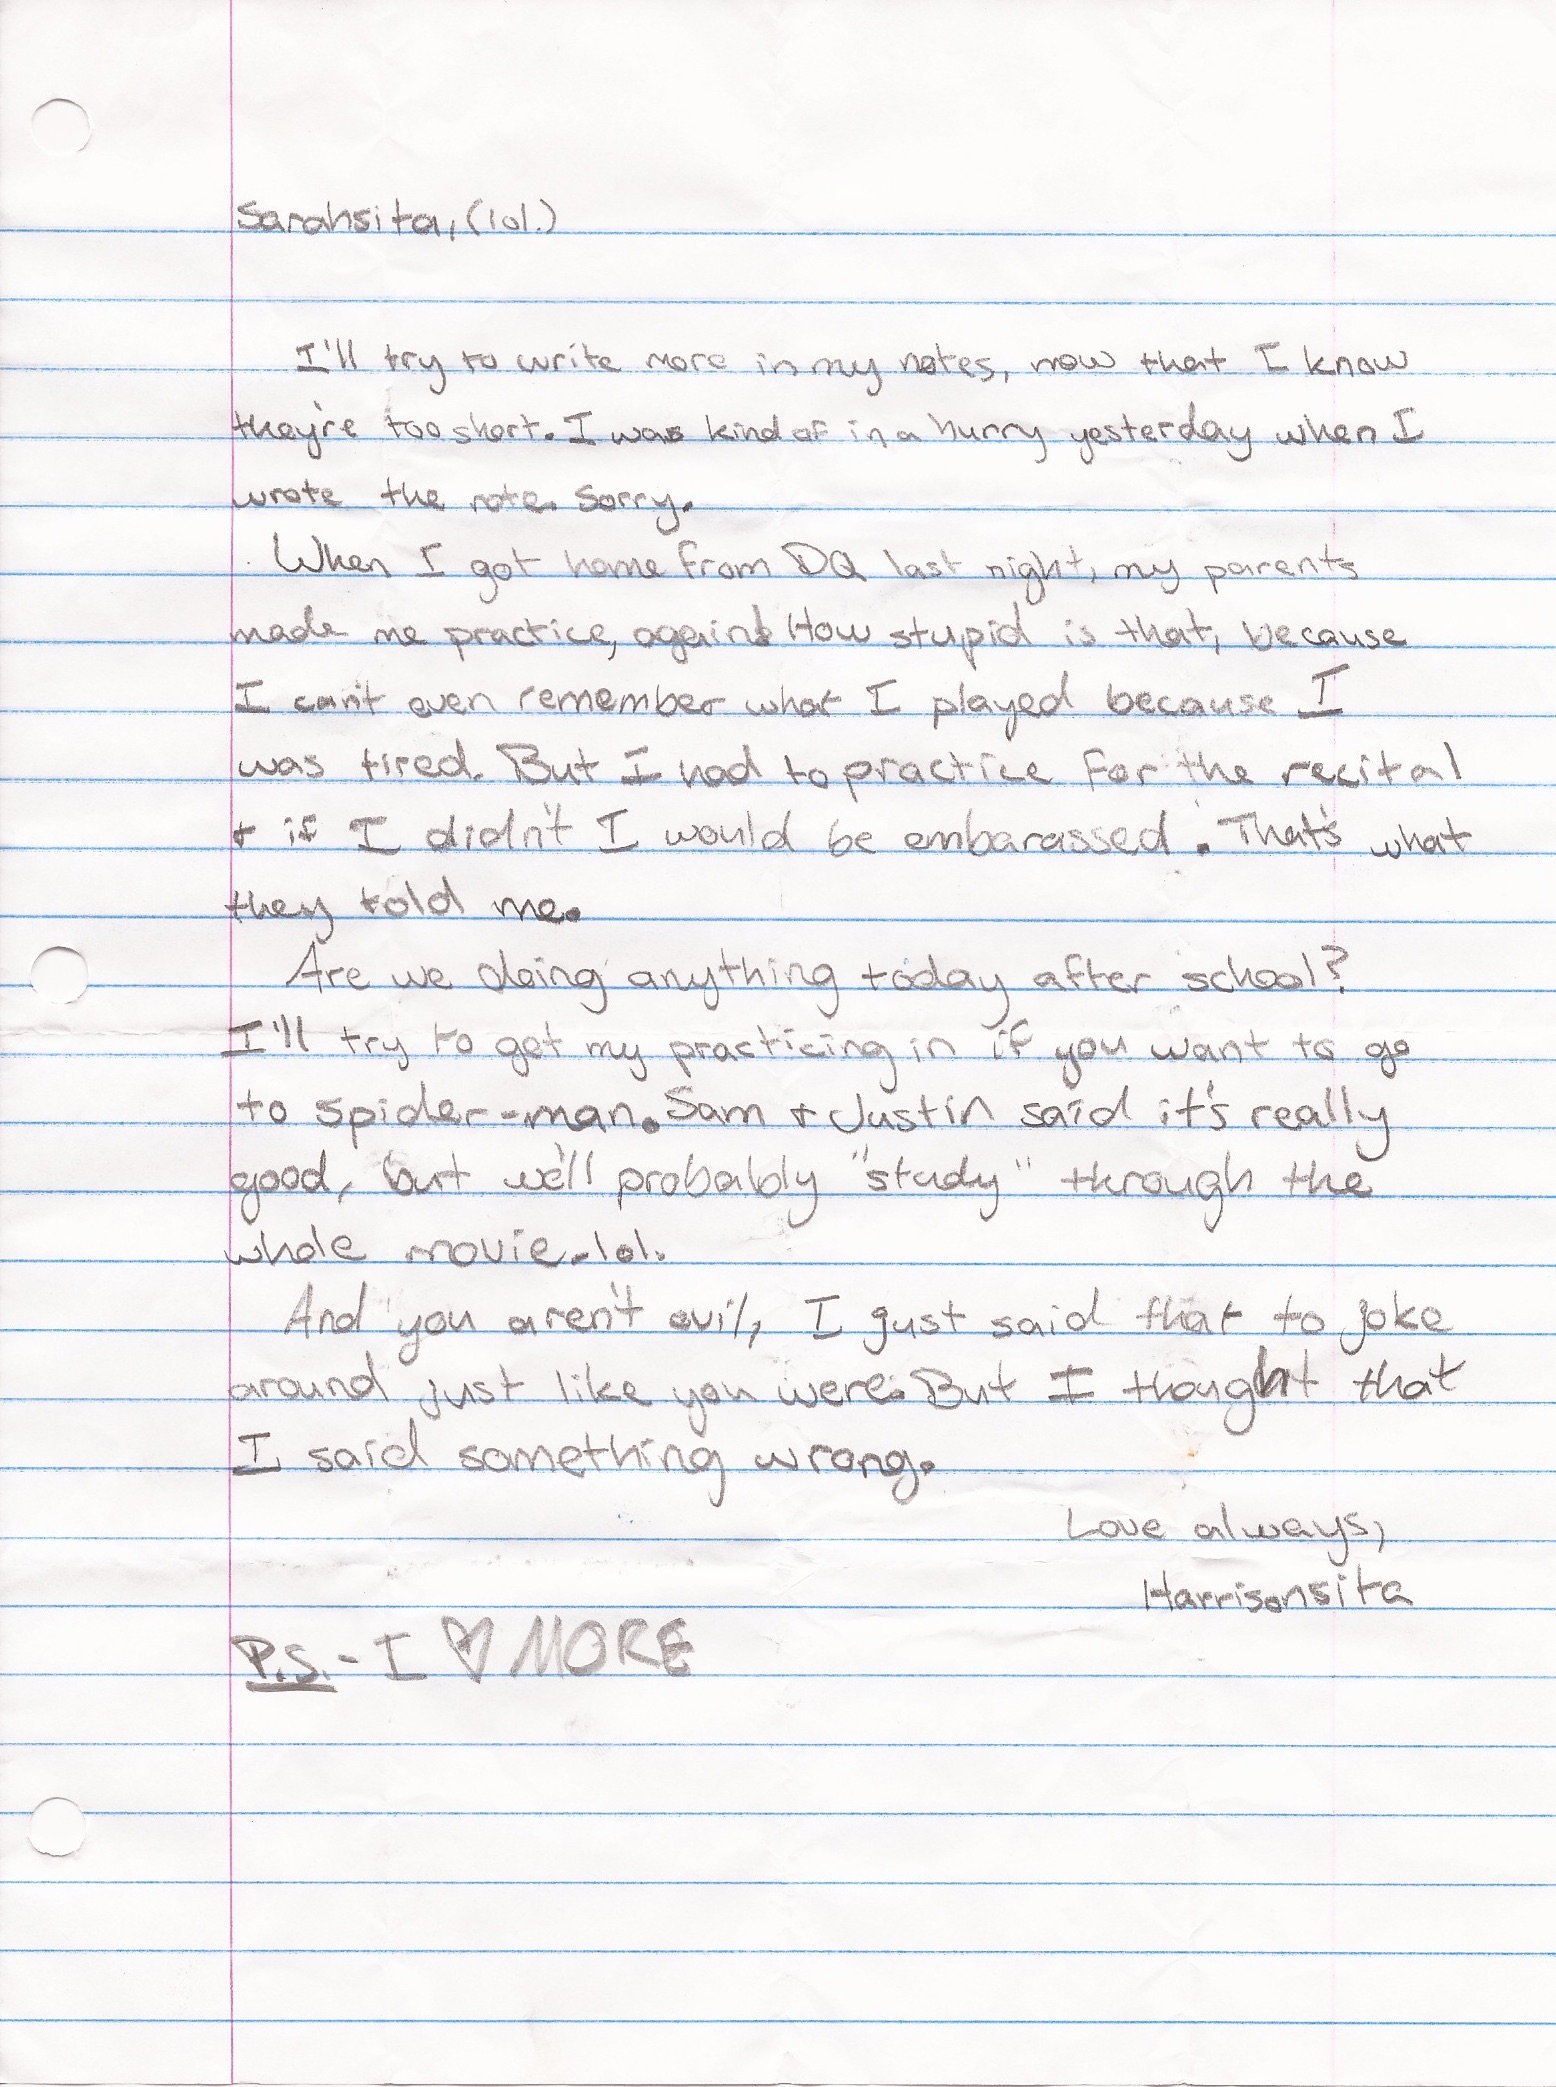 Sarahsita, (lol.)
I'll try to write more in my notes, now that I know
they're too short. I was kind of in a hurry yesterday when I
wrote the note. Sorry.
When I got home from DQ last night, my parents
made me practice, again! How stupid is that, because
I can't even remember what I played because I
was tired. But I had to practice for the recital
+ if I didn't I would be embarassed. That's what
they told me.
Are we doing anything today after school?
I'll try to get my practicing in if you want to go
to spider-man. Sam + Justin said it's really
good, but we'll probably "study" through the
whole movie-lol.
And you aren't evil, I just said that to joke
around just like you were. But I thought that
I said something wrong.
Love always,
Harrisonsita
P.S.- I ♡ MORE